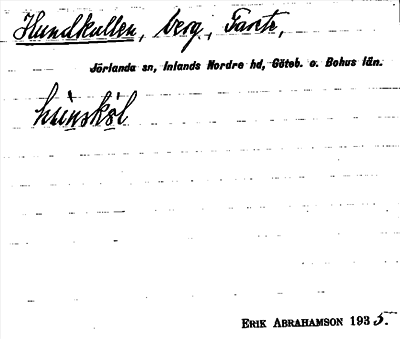 Hundkullen, berg,
Jörlanda sn, Inlands Nordre hd, Göteb. o. Bohus län.
hunskəl
ERIK ABRAHAMSON 1935.